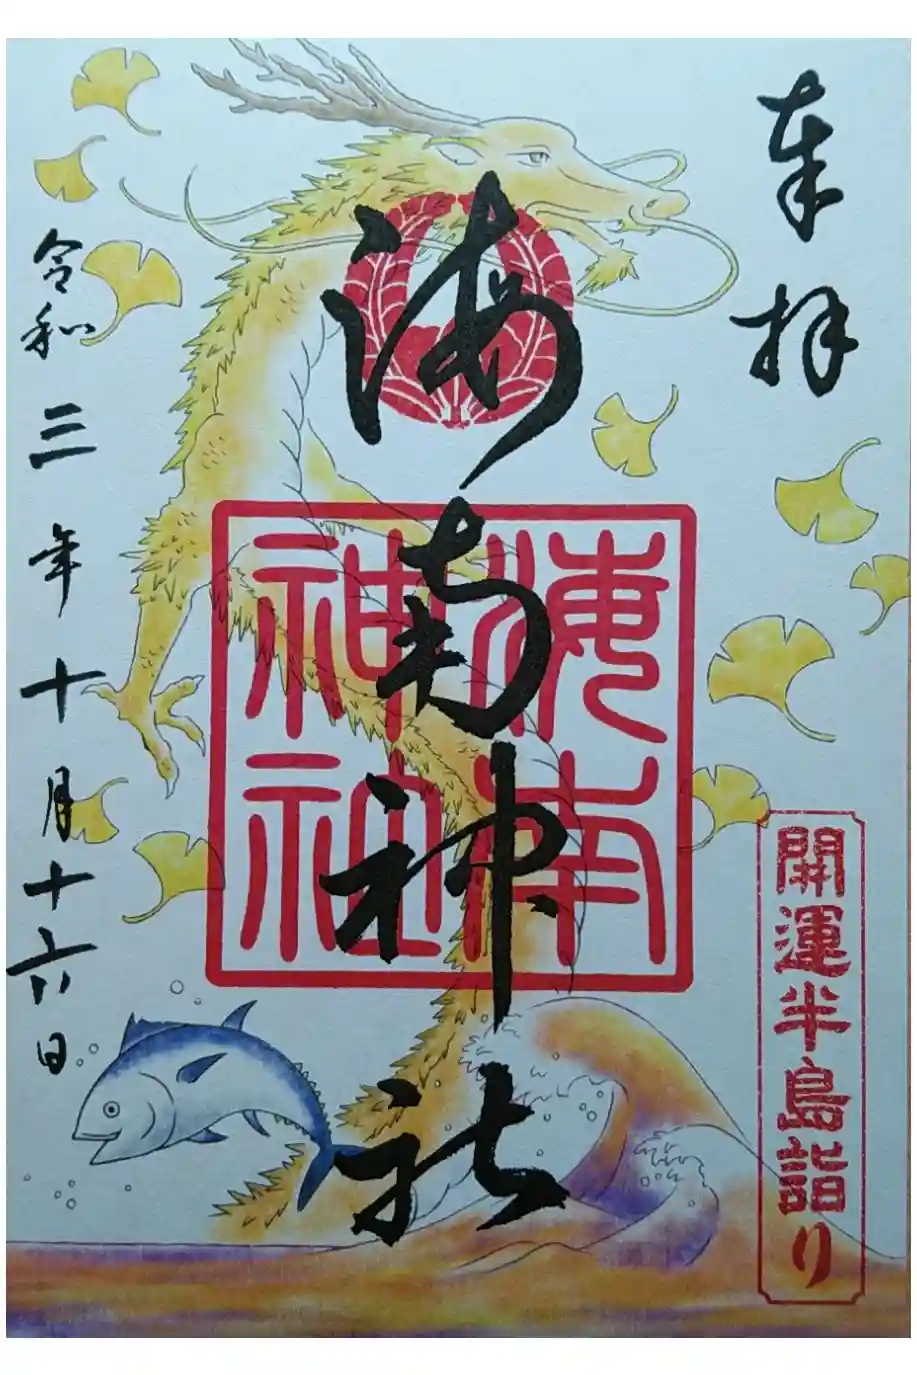 奉拝
海南神社
海南
神社
開運半島詣り
令和三年十月十六日